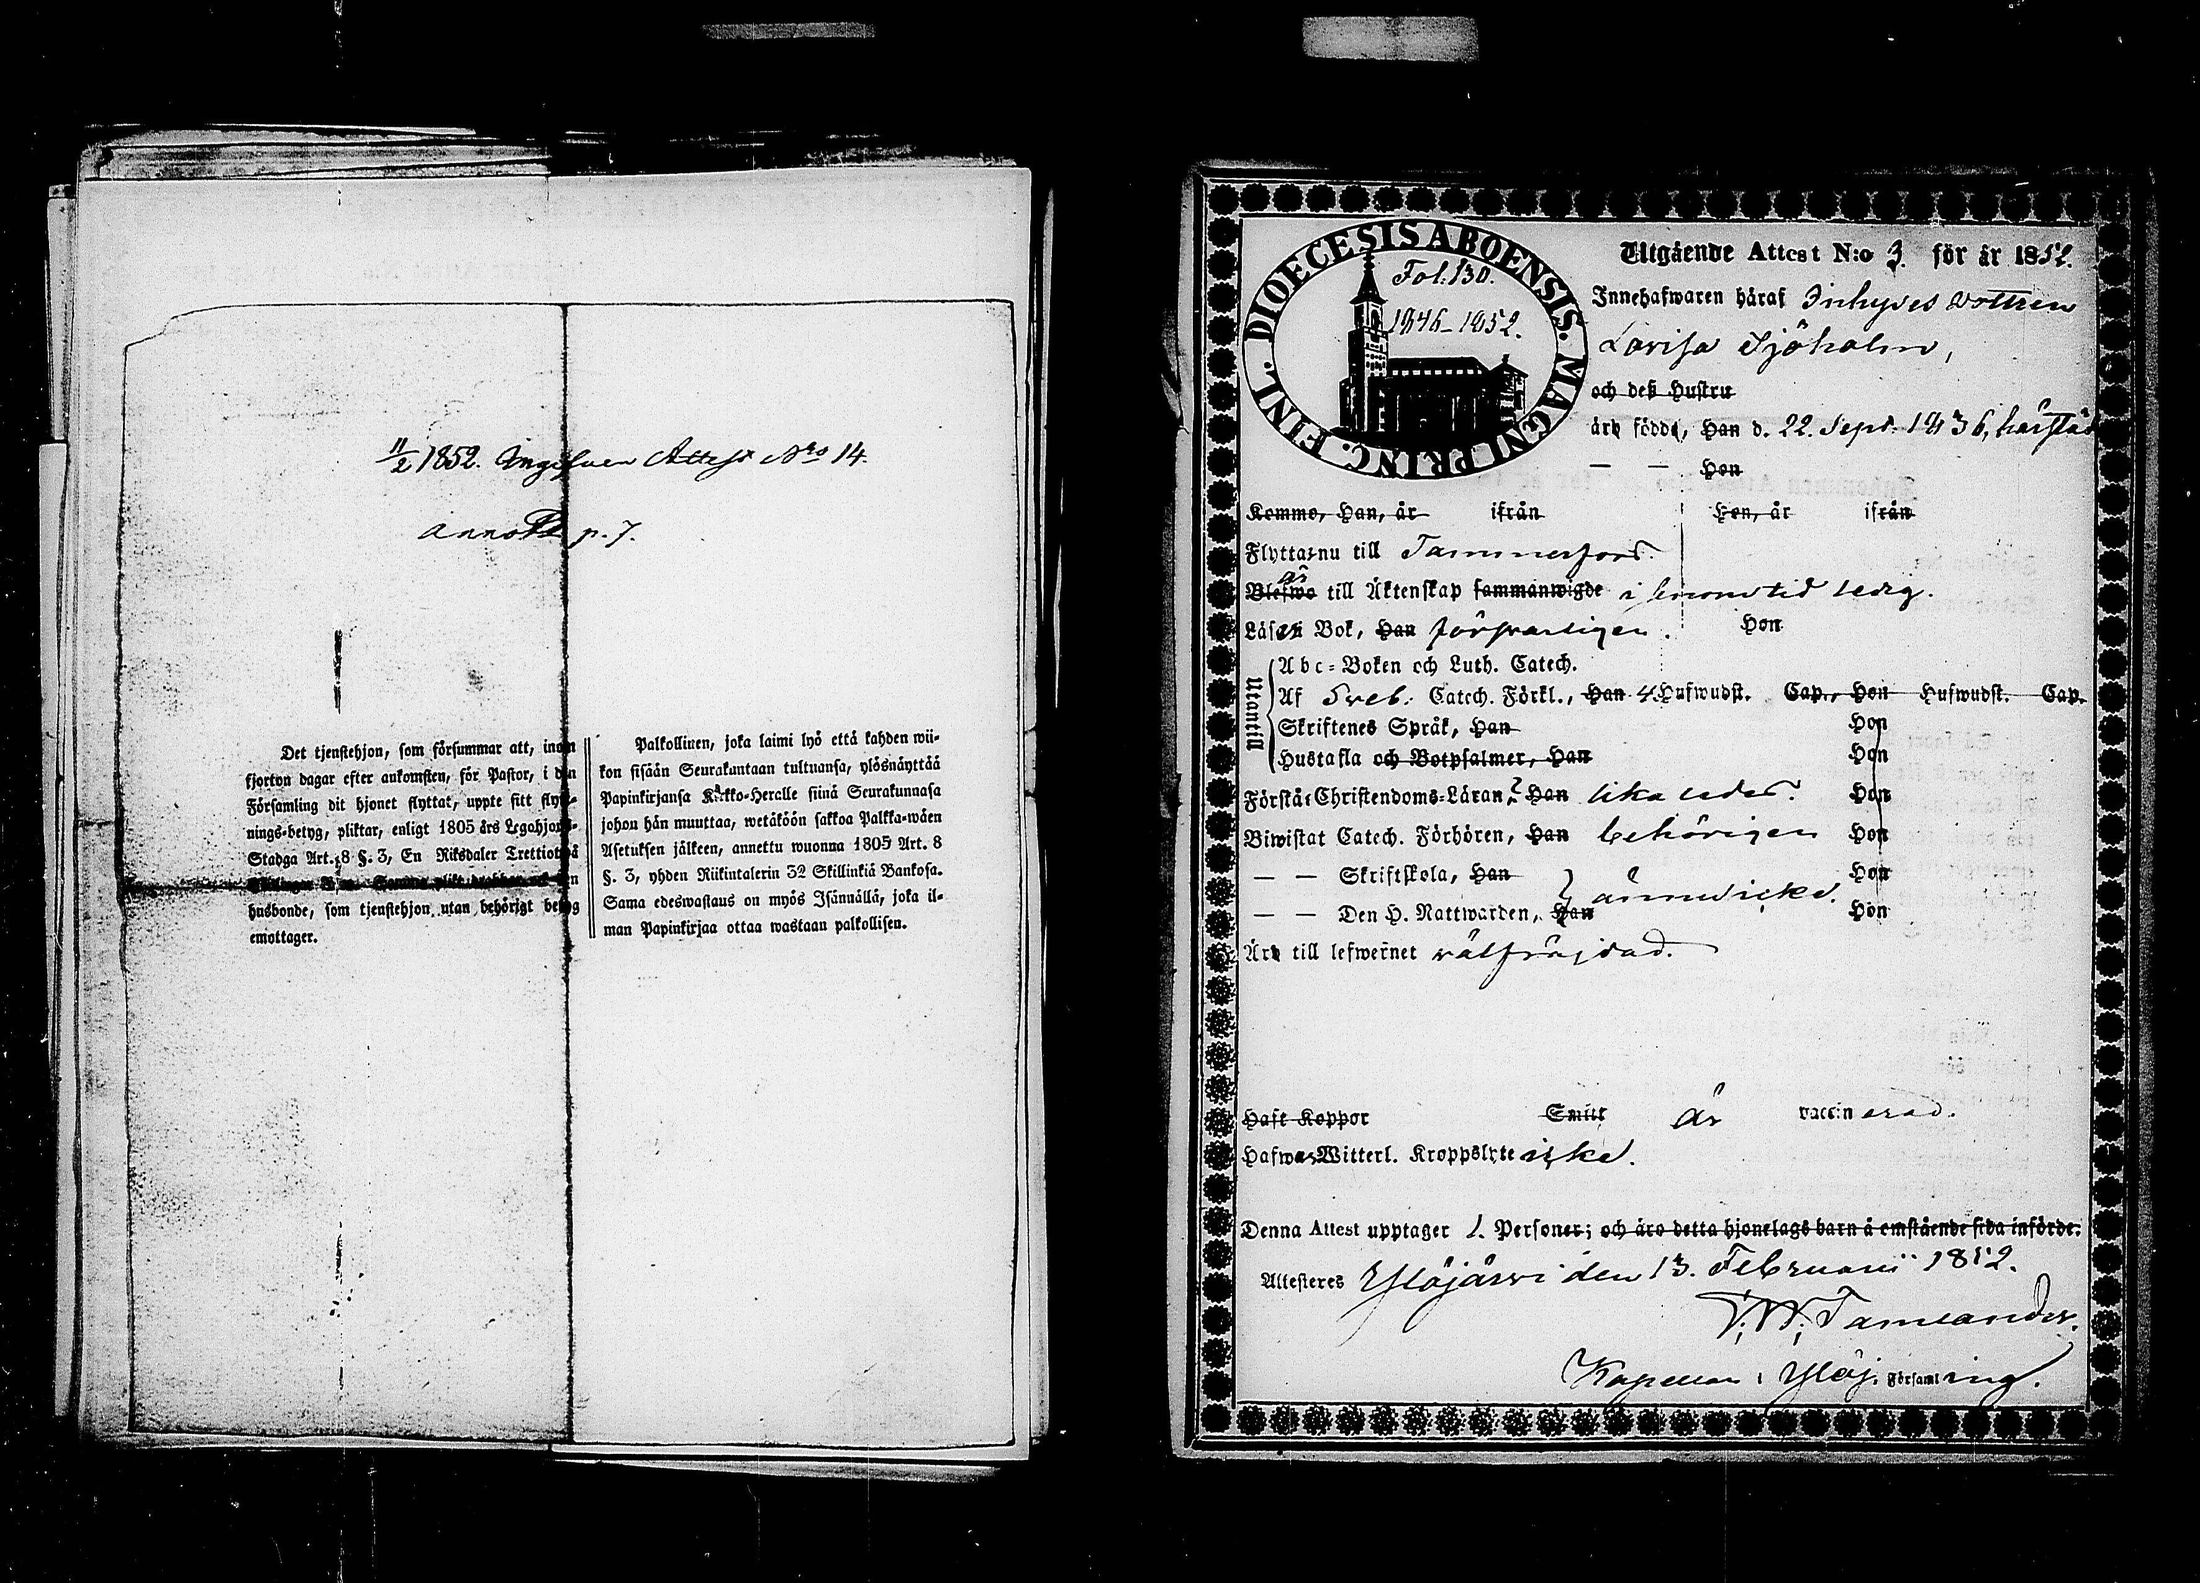 11/2 1852. Ingifven Attest Nro 14.
Annot. p. 7.
Det tjenstehjon, som försummar att, inom
fjorton dagar efter ankomsten, för Pastor, i den
Församling dit hjonet flyttat, uppte sitt flytt-
nings-betyg, pliktar, enligt 1805 års Legohjons-
Stadga Art. 8 §. 3, En Riksdaler Trettiotvå
husbonde, som tjenstehjon utan behörigt betyg
emottager.
Palkollinen, joka laimi lyö että kahden wii-
kon sisään Seurakuntaan tultuansa, ylösnäyttää
Papinkirjansa Kirkko-Heralle siinä Seurakunnasa
johon hän muuttaa, wetäköön sakkoa Palkka-wäen
Asetuksen jälkeen, annettu wuonna 1805 Art. 8
§. 3, yhden Riikintalerin 32 Skillinkiä Bankosa.
Sama edeswastaus on myös Isännällä, joka il-
man Papinkirjaa ottaa wastaan palkollisen.
DIOECESIS ABOENSIS. MAGNI PRINC. FINL.
Fol. 130.
1846-1852.
Utgående Attest N:o 3. för år 1852.
Innehafwaren häraf Inhyses dottren
Lovisa Sjöholm,
och deß Hustru
äro födde, Han d. 22. Sept. 1836, härstäd
— — Hon
Kommo, Han, år ifrån Hon, år ifrån
Flyttar nu till Tammerfors.
Blefwo är till Äktenskap sammanwigde i broms tid ledig.
Läser i Bok, Han försvarligen. Hon
Utantill
Abc-Boken och Luth. Catech.
Af Sveb. Catech. Förkl., Han 4 Hufwudst. Cap., Hon Hufwudst. Cap.
Skriftenes Språk, Han Hon
Hustafla och Botpsalmer, Han Hon
Förstår Christendoms-Läran, Han lika ledes. Hon
Biwistat Catech. Förhören, Han behörigen Hon
— — Skriftskola, Han Hon
ännu icke.
— — Den H. Nattwarden, Han Hon
Äro till lefwernet välfräjdad.
Haft Koppor Smitt är vaccinerad.
Hafwa Witterl. Kroppslyte icke.
Denna Attest upptager 1. Personer; och äro detta hjonelags barn å omstående sida införde.
Attesteres Ylöjärvi den 13. Februarii 1852.
V. W. Tamlander.
Kapellan i Ylöj. Församling.